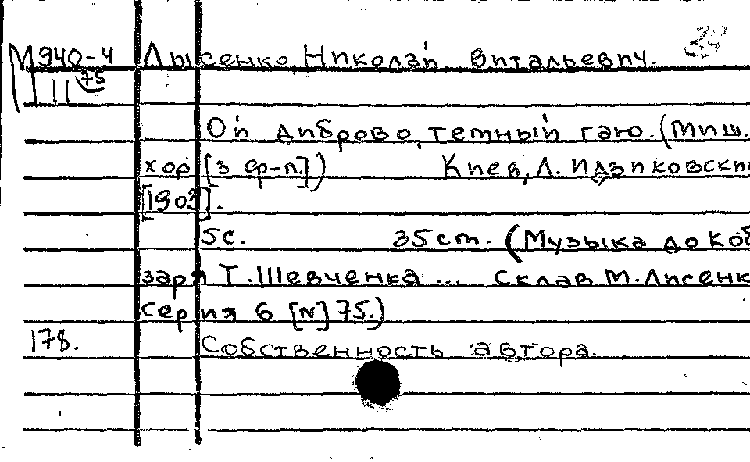 М940-4 Лысенко, Николай Витальевич.
75
Ой диброво, темный гаю. (Миш.
хор [з ф-п]) Киев, Л. Идзиковский
[1903].
5с. 35cm. (Музыка до Коб
заря Т. Шевченка ... Склав М. Лисенк
Серия 6 [№] 75.)
178. Собственность автора.